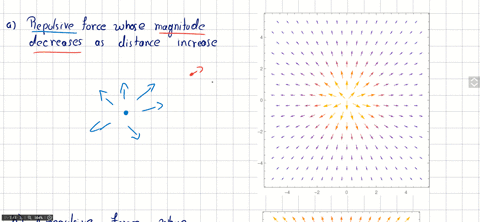 a) Repulsive force whose magnitude
decreases as distance increase
4
2
0
-2
-4
-4 -2 0 2 4
force